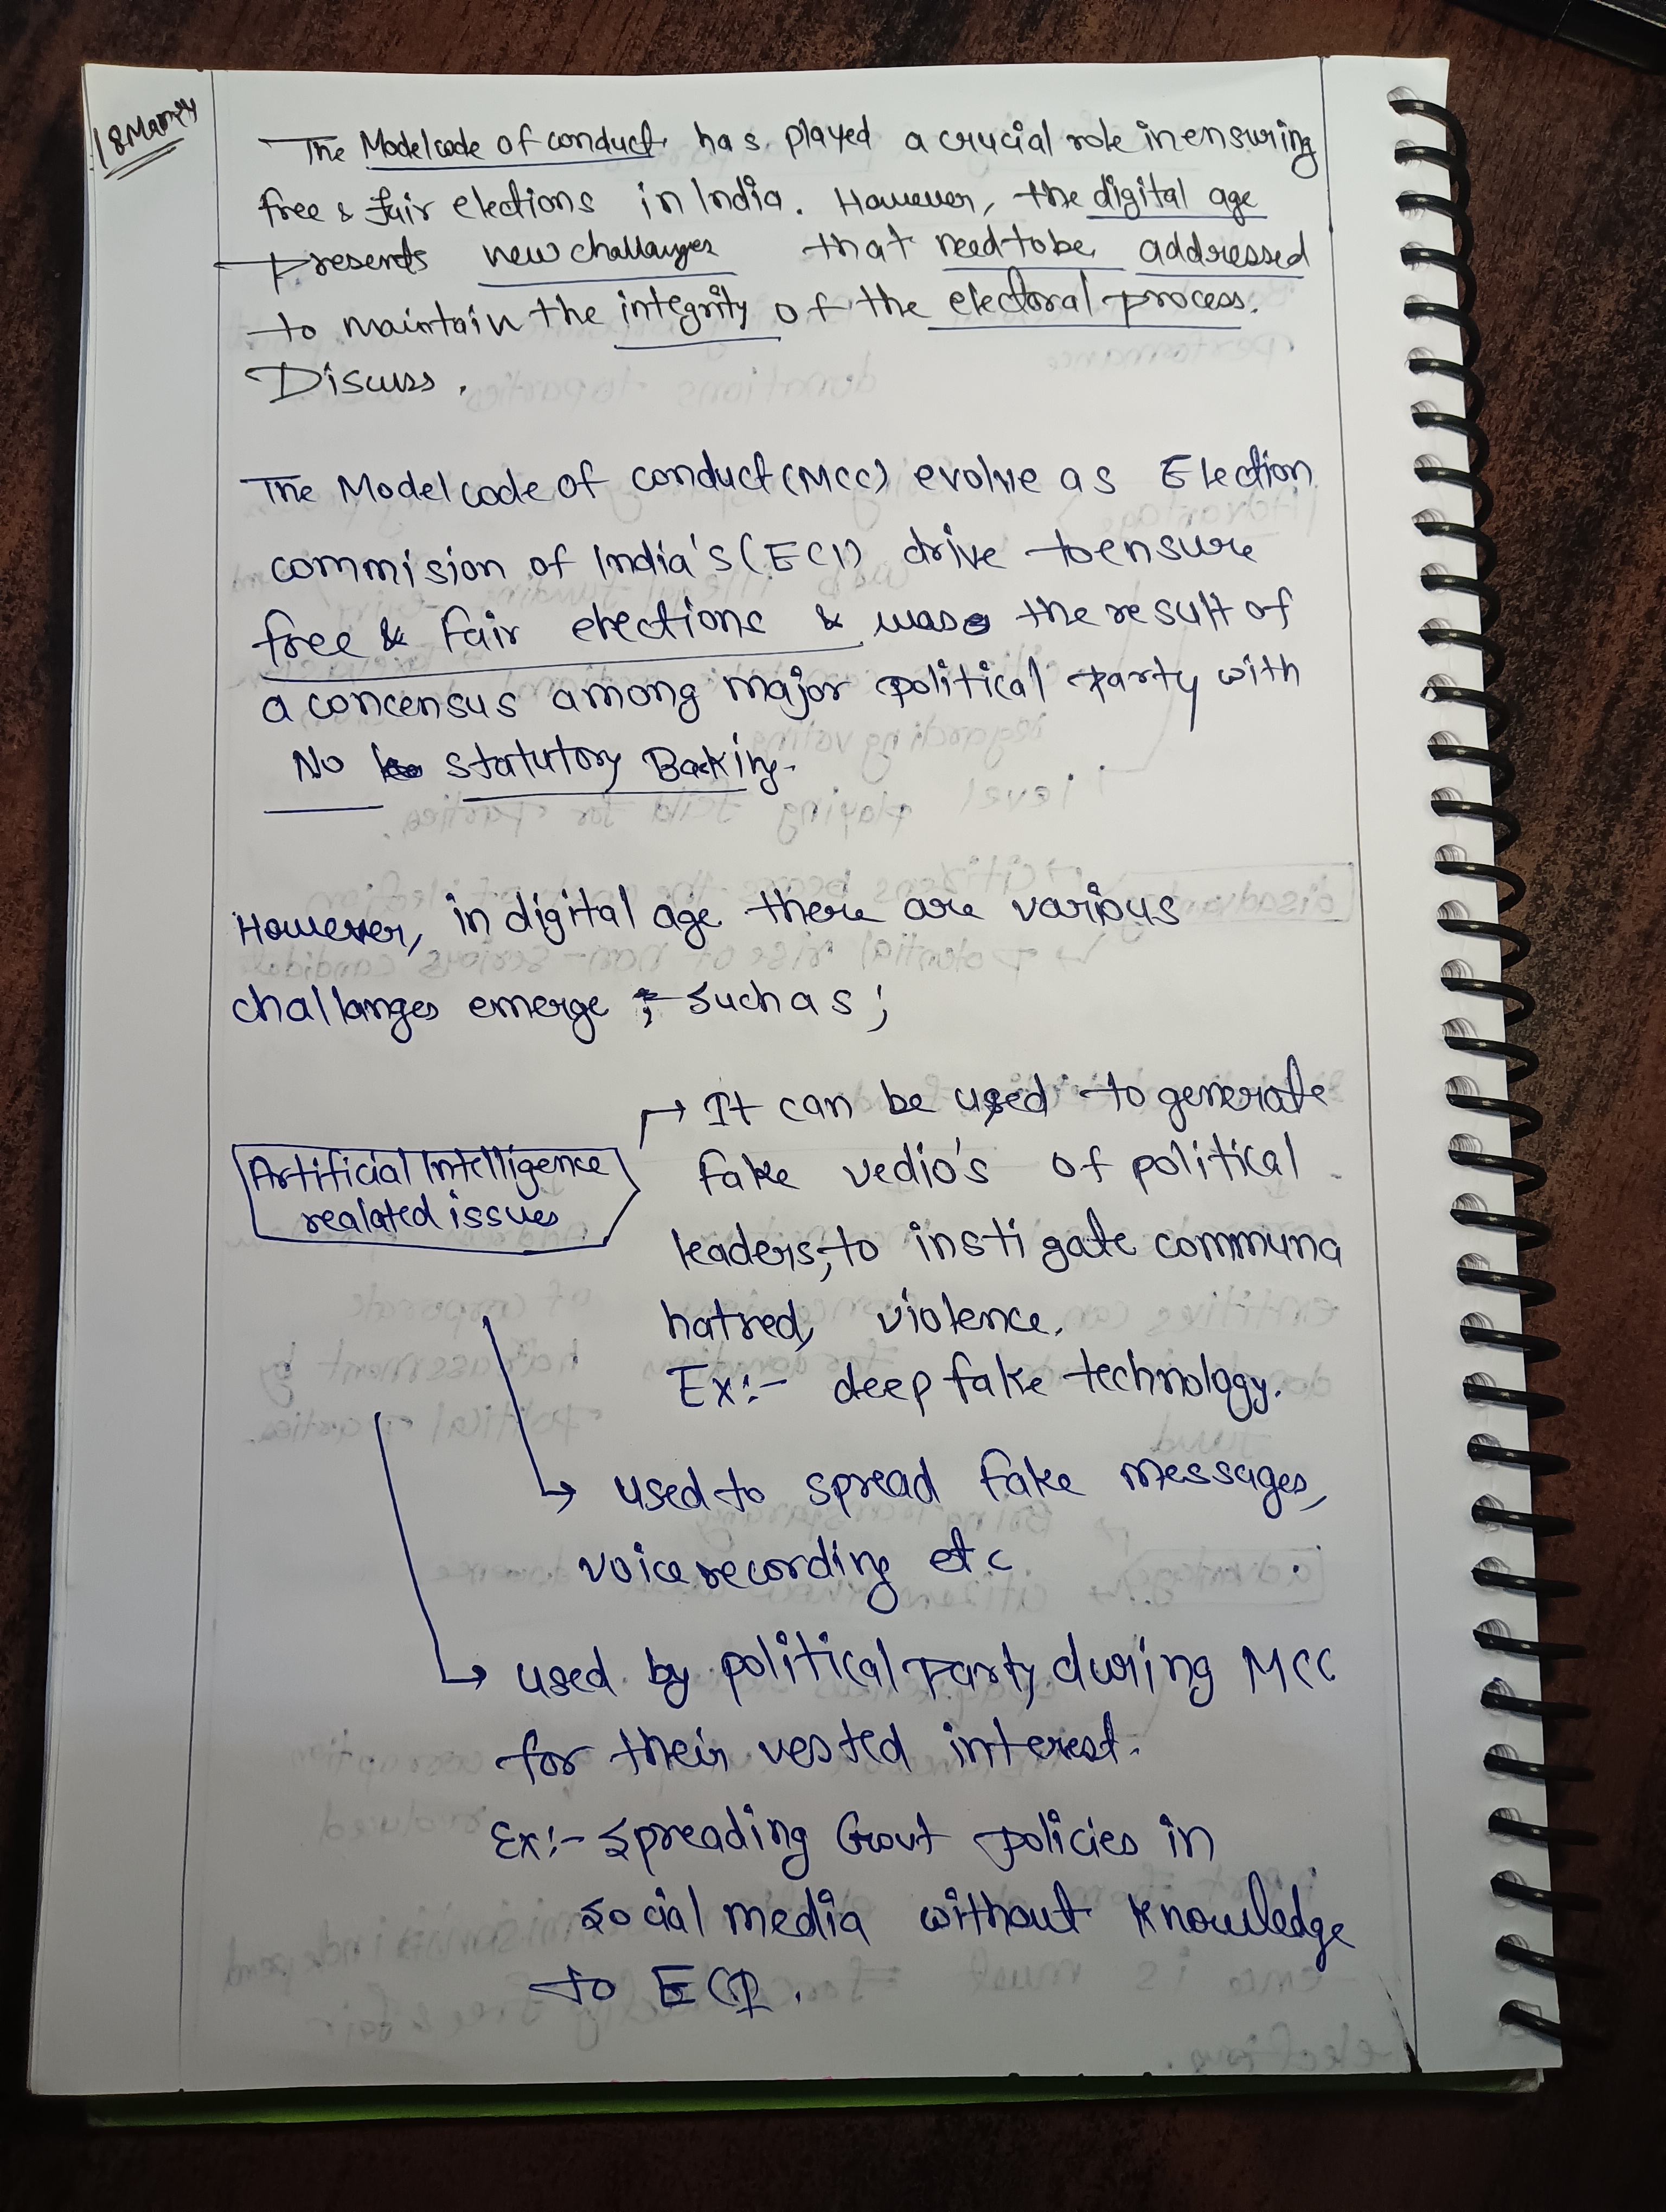 18 Mar 24
The Model code of conduct has played a crucial role in ensuring
free & fair elections in India. However, the digital age
presents new challanges that need to be addressed
to maintain the integrity of the electoral process.
Discuss.
The Model code of conduct (MCC) evolve as Election
commision of India's (ECI) drive to ensure
free & fair elections & was the result of
a concensus among major political party with
No statutory Backing.
However, in digital age there are various
challanges emerge ; such as ;
Artificial Intelligence
realated issues
→ It can be used to generate
fake vedio's of political
leaders, to instigate communa
hatred, violence.
Ex:- deep fake technology.
↳ used to spread fake messages,
voice recording etc
↳ used by political Party during MCC
for their vested interest.
Ex:- spreading Govt policies in
social media without knowledge
to ECI.